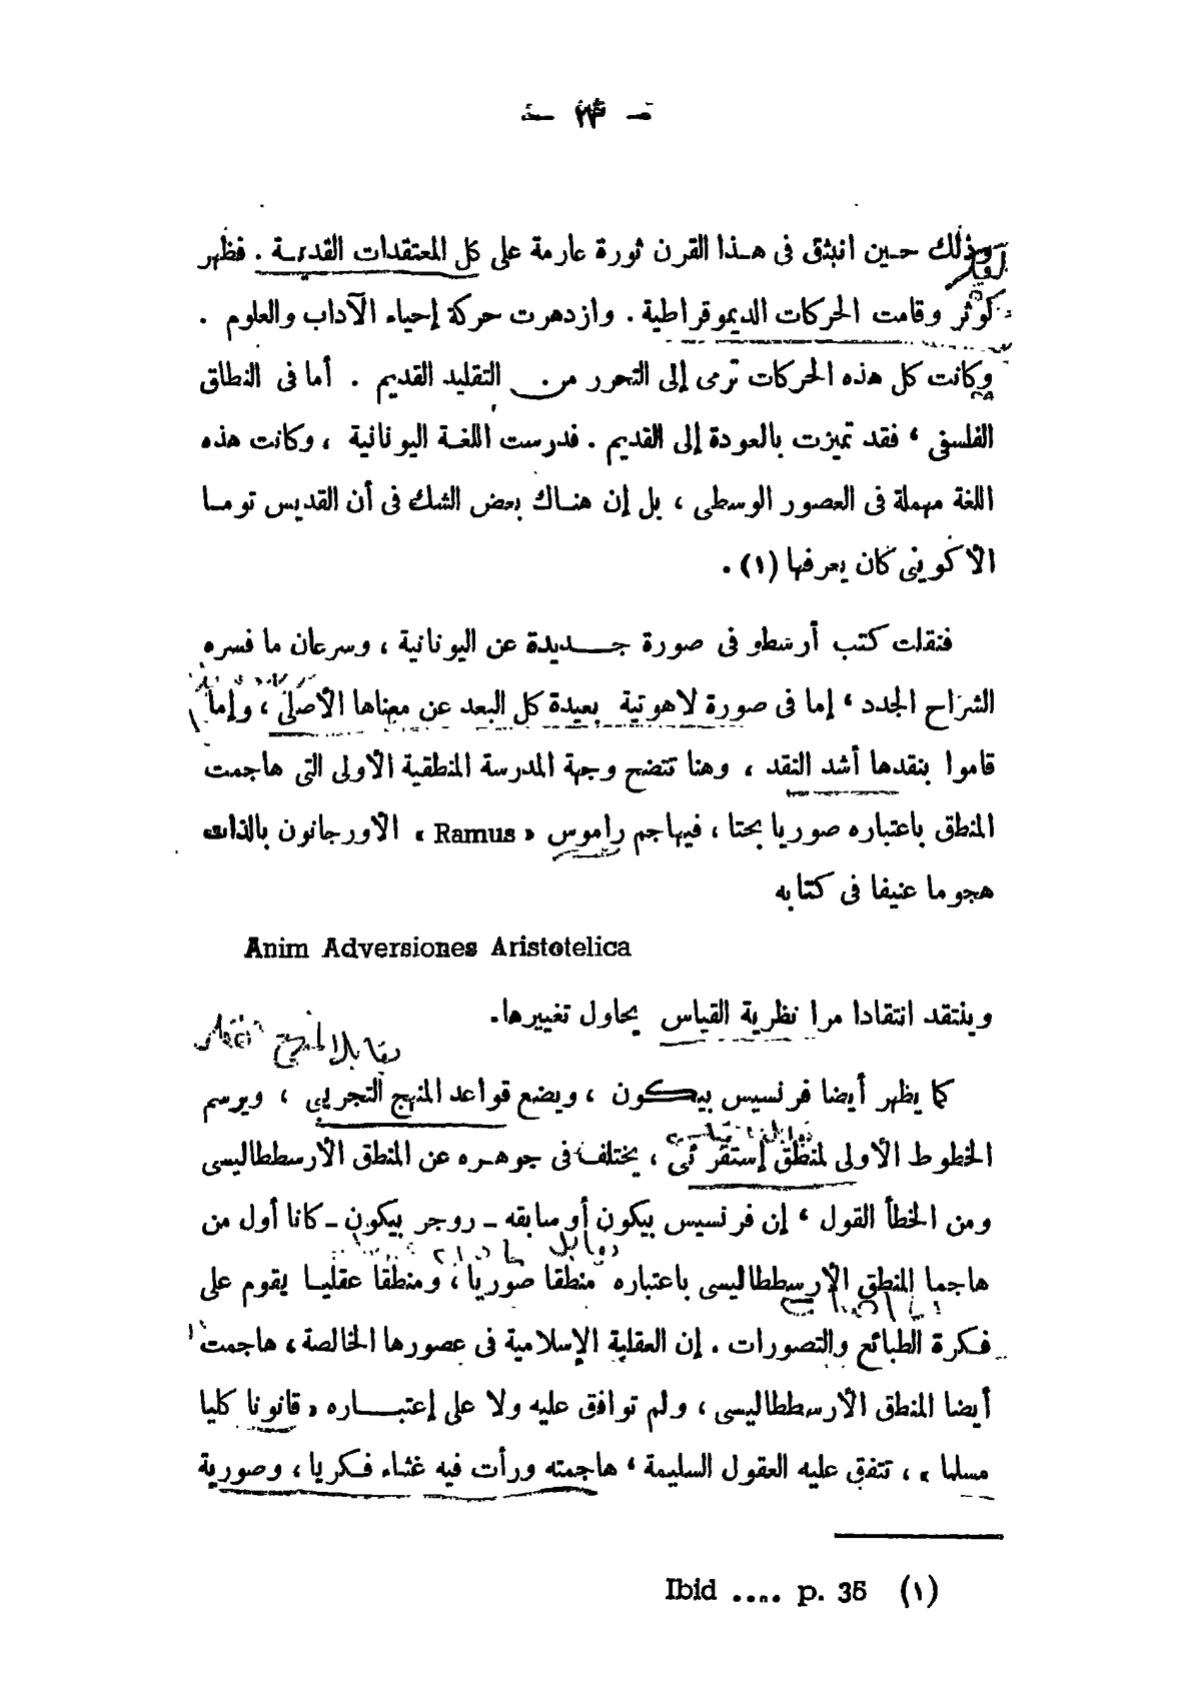 — ٢٣ —
وذلك حين انبثق فى هذا القرن ثورة عارمة على كل المعتقدات القديمة . فظهر
كوثر وقامت الحركات الديموقراطية . وازدهرت حركة إحياء الآداب والعلوم .
وكانت كل هذه الحركات ترمى إلى التحرر من التقليد القديم . أما فى النطاق
الفلسفى ، فقد تميزت بالعودة إلى القديم . فدرست اللغة اليونانية ، وكانت هذه
اللغة مهملة فى العصور الوسطى ، بل إن هناك بعض الشك فى أن القديس توما
الأكوينى كان يعرفها (١) .
فنقلت كتب أرسطو فى صورة جديدة عن اليونانية ، وسرعان ما فسره
الشراح الجدد ، إما فى صورة لاهوتية بعيدة كل البعد عن معناها الأصلى ، وإما
قاموا بنقدها أشد النقد ، وهنا تتضح وجهة المدرسة المنطقية الأولى التى هاجمت
المنطق باعتباره صوريا بحتا ، فيهاجم راموس « Ramus » الأورجانون بالذات
هجوما عنيفا فى كتابه
Anim Adversiones Aristotelica
وينتقد انتقادا مرا نظرية القياس يحاول تغييرها.
كما يظهر أيضا فرنسيس بيكون ، ويضع قواعد المنهج التجريبى ، ويرسم
الخطوط الأولى لمنطق إستقرائى ، يختلف فى جوهره عن المنطق الأرسططاليسى
ومن الخطأ القول ، إن فرنسيس بيكون أو سابقه – روجر بيكون – كانا أول من
هاجما المنطق الأرسططاليسى باعتباره منطقا صوريا ، ومنطقا عقليا يقوم على
فكرة الطبائع والتصورات . إن العقلية الإسلامية فى عصورها الخالصة ، هاجمت
أيضا المنطق الأرسططاليسى ، ولم توافق عليه ولا على إعتباره « قانونا كليا
مسلما » ، تتفق عليه العقول السليمة ، هاجمته ورأت فيه غثاء فكريا ، وصورية
(١) Ibid .... p. 35